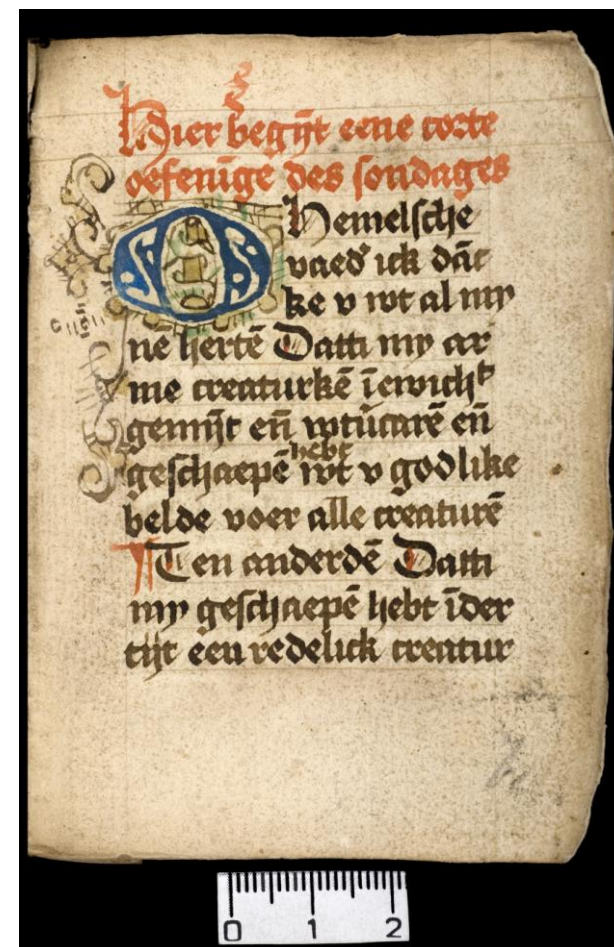 Hier begīt eene corte
oefenīge des sondages
O Hemelsche
vaed' ick dāc
ke v wt al my
nē hertē Datti my ar
me creaturkē ī ewich
gemīt eñ wtūcarē eñ
geschaepē hebt wt v godlike
belde voer alle creaturē
Ten anderdē Datti
my geschaepē hebt īder
tijt een redelick creatur
0 1 2